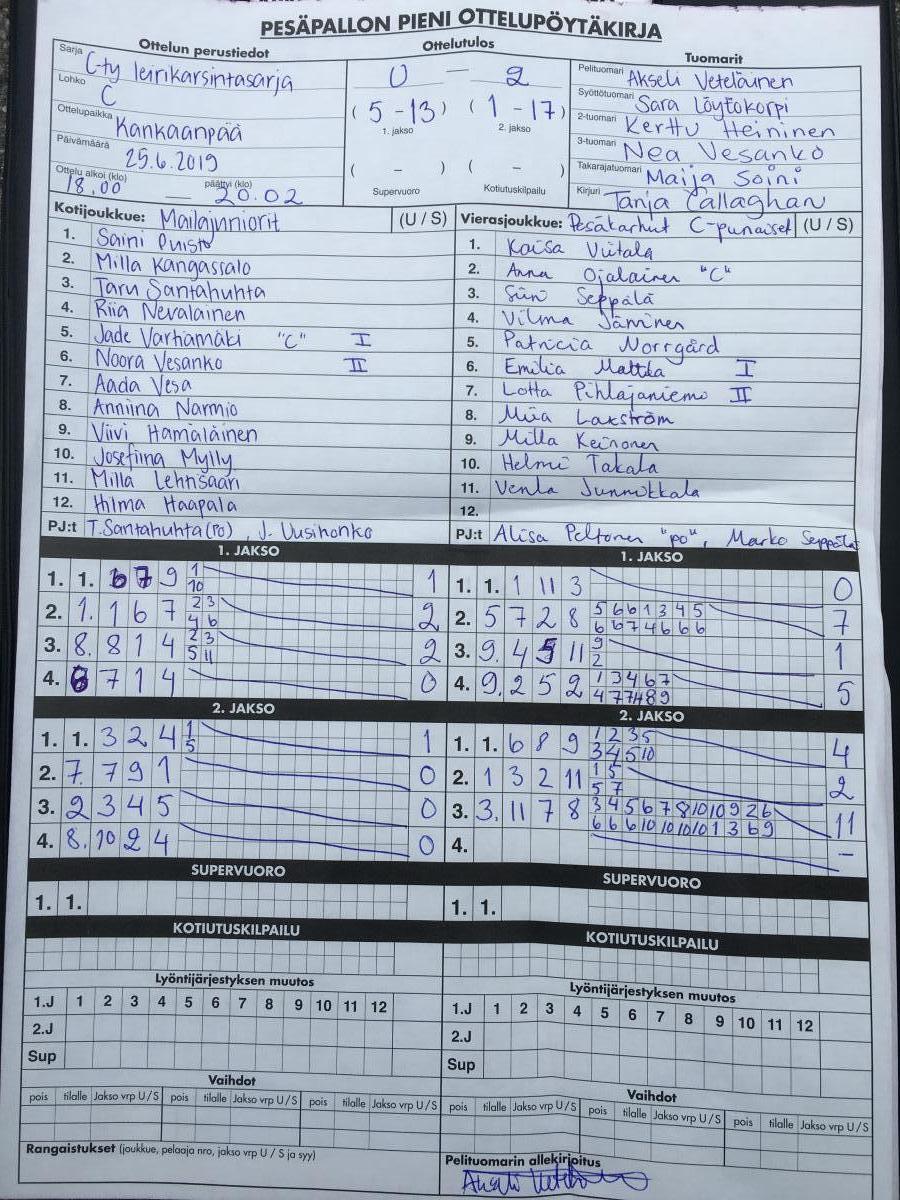 PESÄPALLON PIENI OTTELUPÖYTÄKIRJA
Ottelun perustiedot
Sarja C-ty leirikarsintasarja
Lohko C
Ottelupaikka Kankaanpää
Päivämäärä 25.6.2019
Ottelu alkoi (klo) päättyi (klo)
18.00 — 20.02
Ottelutulos
0 — 2
( 5 - 13 ) ( 1 - 17 )
1. jakso 2. jakso
( - ) ( - )
Supervuoro Kotiutuskilpailu
Tuomarit
Pelituomari Akseli Veteläinen
Syöttötuomari Sara Löytökorpi
2-tuomari Kerttu Heininen
3-tuomari Nea Vesanko
Takarajatuomari Maija Soini
Kirjuri Tanja Callaghan
Kotijoukkue: Mailajuniorit (U / S)
1. Saini Puisto
2. Milla Kangassalo
3. Taru Santahuhta
4. Riia Nevalainen
5. Jade Varhamäki "C" I
6. Noora Vesanko II
7. Aada Vesa
8. Anniina Narmio
9. Viivi Hämäläinen
10. Josefiina Mylly
11. Milla Lehtisaari
12. Hilma Haapala
PJ:t T.Santahuhta(PO), J. Uusihonko
Vierasjoukkue: Pesäkarhut C-punaiset (U / S)
1. Kaisa Viitala
2. Anna Ojalainen "C"
3. Siiri Seppälä
4. Vilma Jäminen
5. Patricia Norrgård
6. Emilia Mattila I
7. Lotta Pihlajaniemi II
8. Miia Lakström
9. Milla Keinonen
10. Helmi Takala
11. Venla Junnikkala
12.
PJ:t Alisa Peltonen "po", Marko Seppälä
1. JAKSO
1. 1. 6 7 9 1 1
10
2. 1. 1 6 7 2 3 2
4 6
3. 8. 8 1 4 2 3 2
5 11
4. 8 7 1 4 0
2. JAKSO
1. 1. 3 2 4 1 1
5
2. 7. 7 9 1 0
3. 2 3 4 5 0
4. 8. 10 2 4 0
SUPERVUORO
1. 1.
KOTIUTUSKILPAILU
1. JAKSO
1. 1. 1 11 3 0
2. 5 7 2 8 5 6 6 1 3 4 5 7
6 6 7 4 6 6 6
3. 9. 4 5 11 9 1
2
4. 9. 2 5 2 1 3 4 6 7 5
4 7 7 4 8 9
2. JAKSO
1. 1. 6 8 9 1 2 3 5 4
3 4 5 10
2. 1 3 2 11 1 5 2
5 7
3. 3. 11 7 8 3 4 5 6 7 8 10 10 9 2 6 11
6 6 6 10 10 10 10 1 3 6 9
4. –
SUPERVUORO
1. 1.
KOTIUTUSKILPAILU
Lyöntijärjestyksen muutos
1.J 1 2 3 4 5 6 7 8 9 10 11 12
2.J
Sup
Lyöntijärjestyksen muutos
1.J 1 2 3 4 5 6 7 8 9 10 11 12
2.J
Sup
Vaihdot
pois tilalle Jakso vrp U / S pois tilalle Jakso vrp U / S pois tilalle Jakso vrp U / S
Vaihdot
pois tilalle Jakso vrp U / S pois tilalle Jakso vrp U / S pois tilalle Jakso vrp U / S
Rangaistukset (joukkue, pelaaja nro, jakso vrp U / S ja syy)
Pelituomarin allekirjoitus